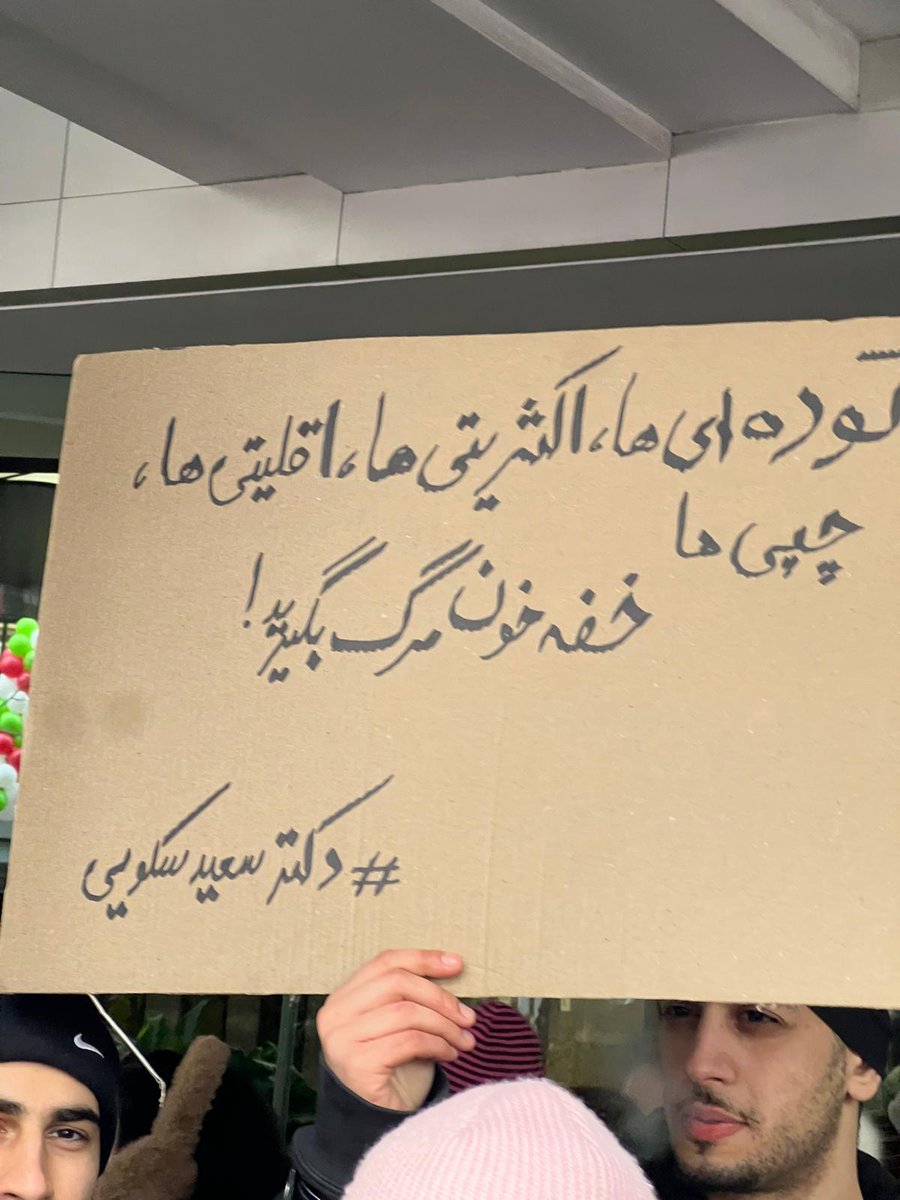 توده ای ها، اکثریتی ها، اقلیتی ها،
چپی ها
خفه خون مرگ بگیرید!
#دکتر سعید سکویی